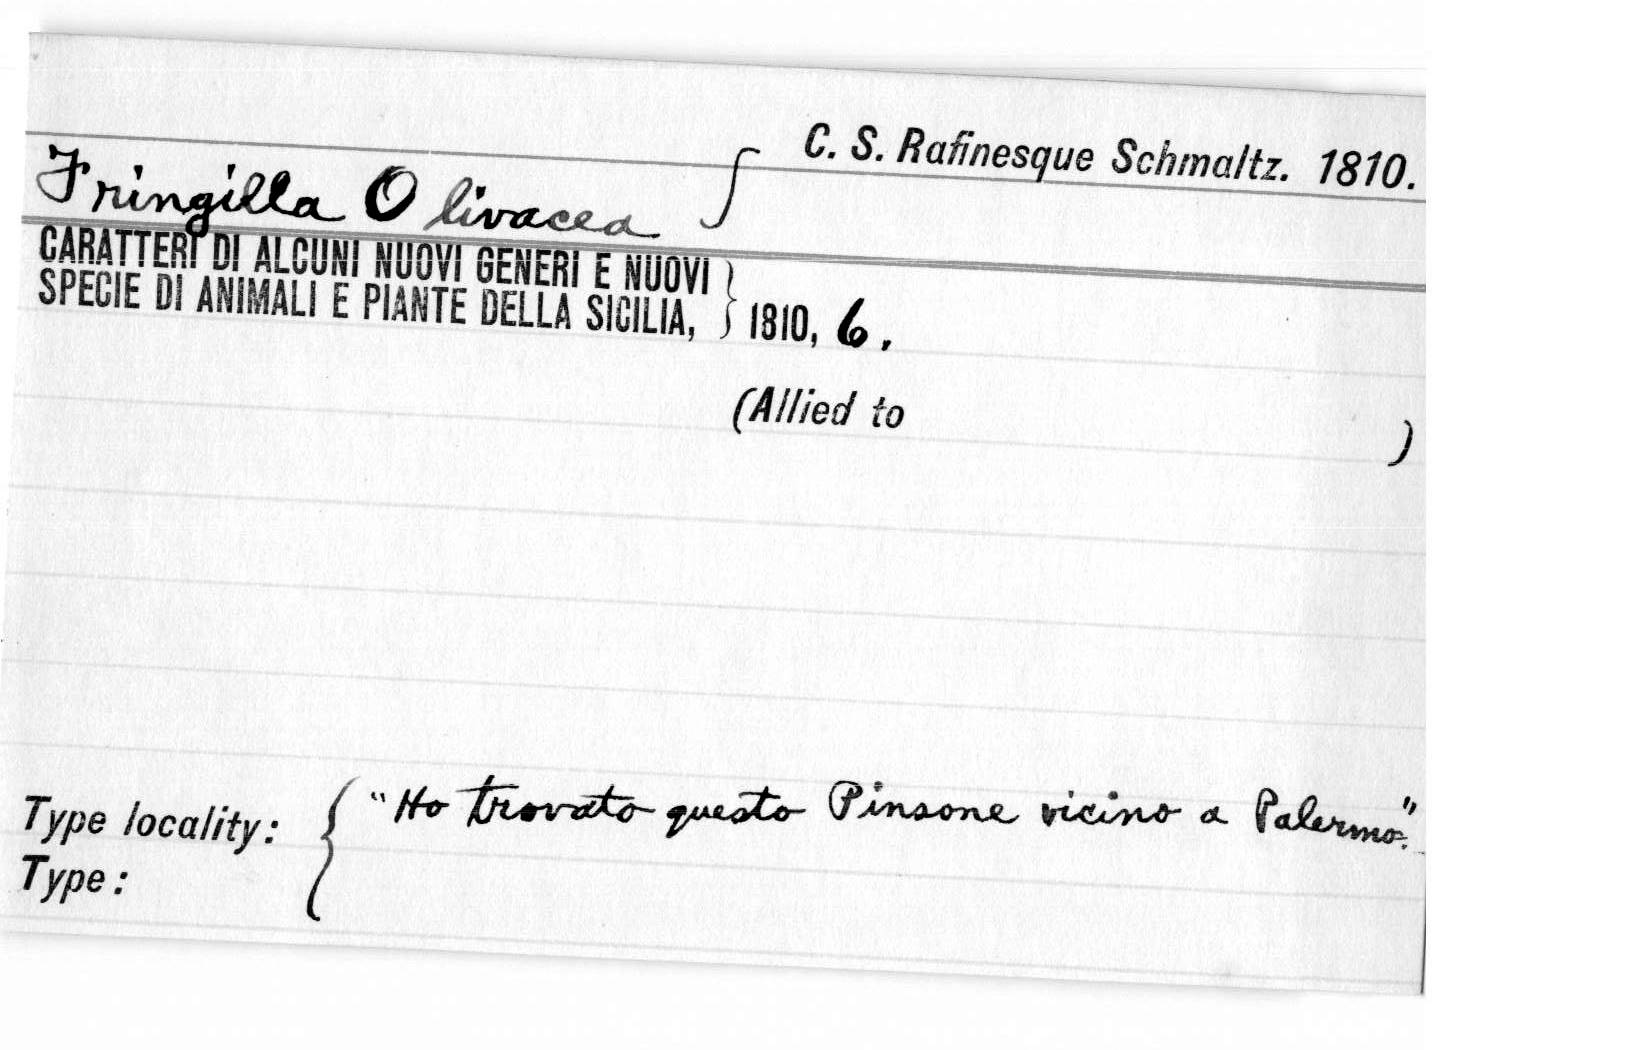 Fringilla Olivacea { C. S. Rafinesque Schmaltz. 1810.
CARATTERI DI ALCUNI NUOVI GENERI E NUOVI
SPECIE DI ANIMALI E PIANTE DELLA SICILIA, } 1810, 6.
(Allied to )
Type locality: { "Ho trovato questo Pinsone vicino a Palermo."
Type: